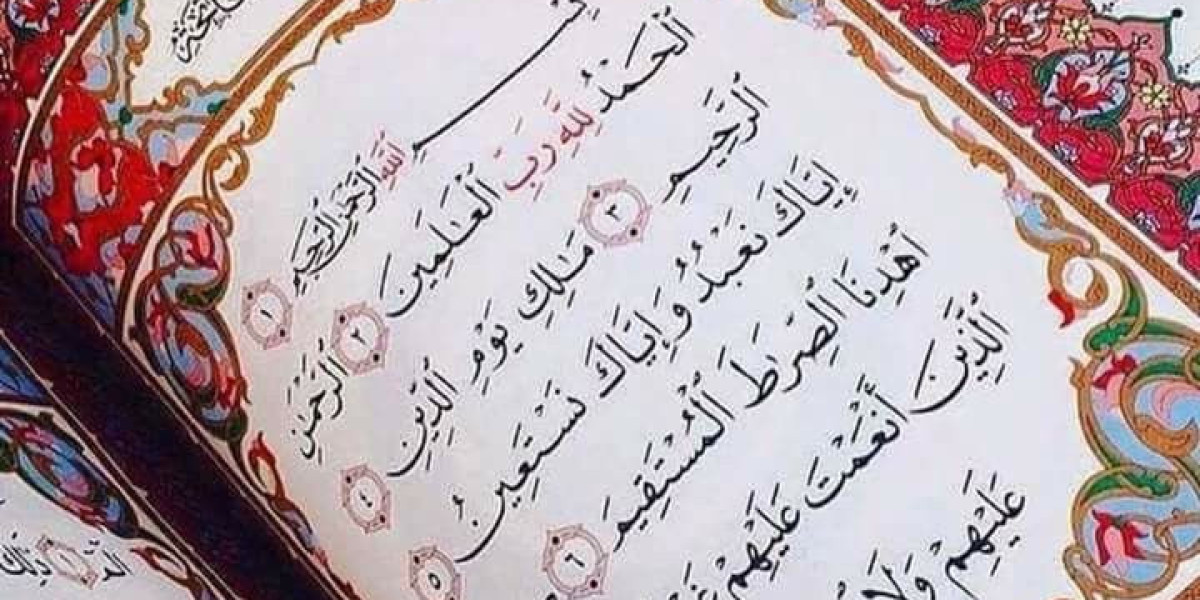 بِسْمِ اللَّهِ الرَّحْمَٰنِ الرَّحِيمِ ١
الْحَمْدُ لِلَّهِ رَبِّ الْعَٰلَمِينَ ٢ الرَّحْمَٰنِ
الرَّحِيمِ ٣ مَٰلِكِ يَوْمِ الدِّينِ ٤
إِيَّاكَ نَعْبُدُ وَإِيَّاكَ نَسْتَعِينُ ٥
اهْدِنَا الصِّرَٰطَ الْمُسْتَقِيمَ ٦
الَّذِينَ أَنْعَمْتَ عَلَيْهِمْ
عَلَيْهِمْ وَلَا
الم ١ ذَٰلِكَ